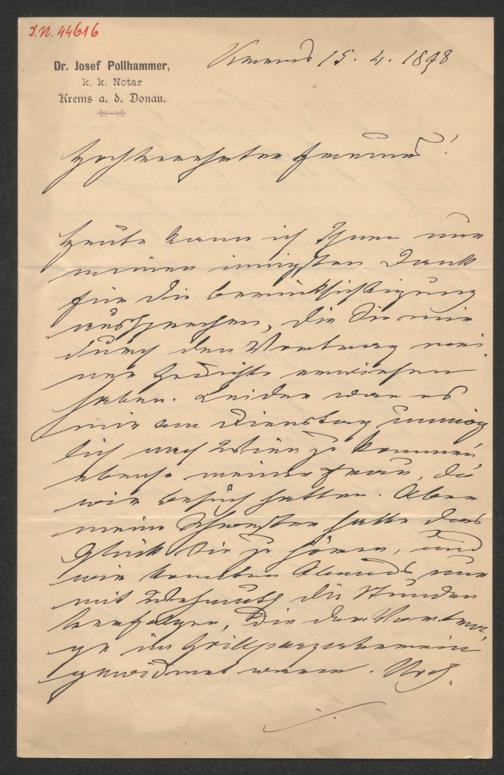 I.N. 44616
Dr. Josef Pollhammer,
k. k. Notar
Krems a. d. Donau.
Krems 15. 4. 1898
Hochverehrter Freund!
Heute kann ich Ihnen nur
meinen innigsten Dank
für die Berücksichtigung
aussprechen, die Sie mir
durch den Vortrag mei-
ner Gedichte erwiesen
haben. Leider war es
mir am Dienstag unmög
lich nach Wien zu kommen
ebenso meiner Frau, da
wir Besuch hatten. Aber
meine Schwester hatte das
Glück Sie zu hören, und
wir Abends nur
mit Wehmuth die Stunden
verfolgen, die dem Vortra-
ge im Grillparzerverein
gewidmet waren. Noch-